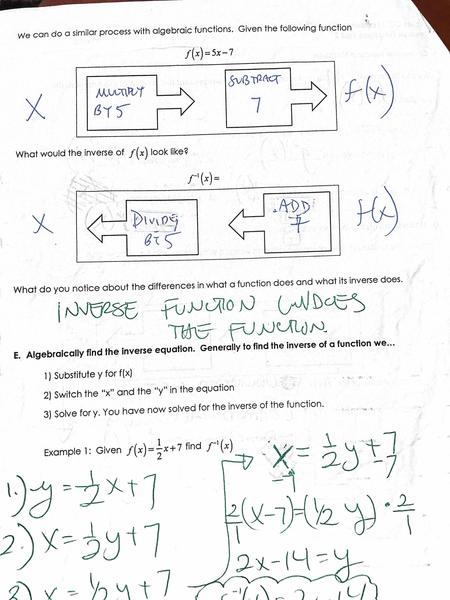 We can do a similar process with algebraic functions. Given the following function
f(x)=5x-7
X
MULTIPLY
BY 5
SUBTRACT
7
f(x)
What would the inverse of f(x) look like?
f⁻¹(x)=
X
DIVIDE
BY 5
ADD
7
f(x)
What do you notice about the differences in what a function does and what its inverse does.
INVERSE FUNCTION UNDOES
THE FUNCTION.
E. Algebraically find the inverse equation. Generally to find the inverse of a function we...
1) Substitute y for f(x)
2) Switch the "x" and the "y" in the equation
3) Solve for y. You have now solved for the inverse of the function.
Example 1: Given f(x)=1/2x+7 find f⁻¹(x)
1.) y = 1/2x+7
2.) x = 1/2y+7
3) x = 1/2y+7
x = 1/2y+7
-7 -7
2/1(x-7)=(1/2 y)·2/1
2x-14=y